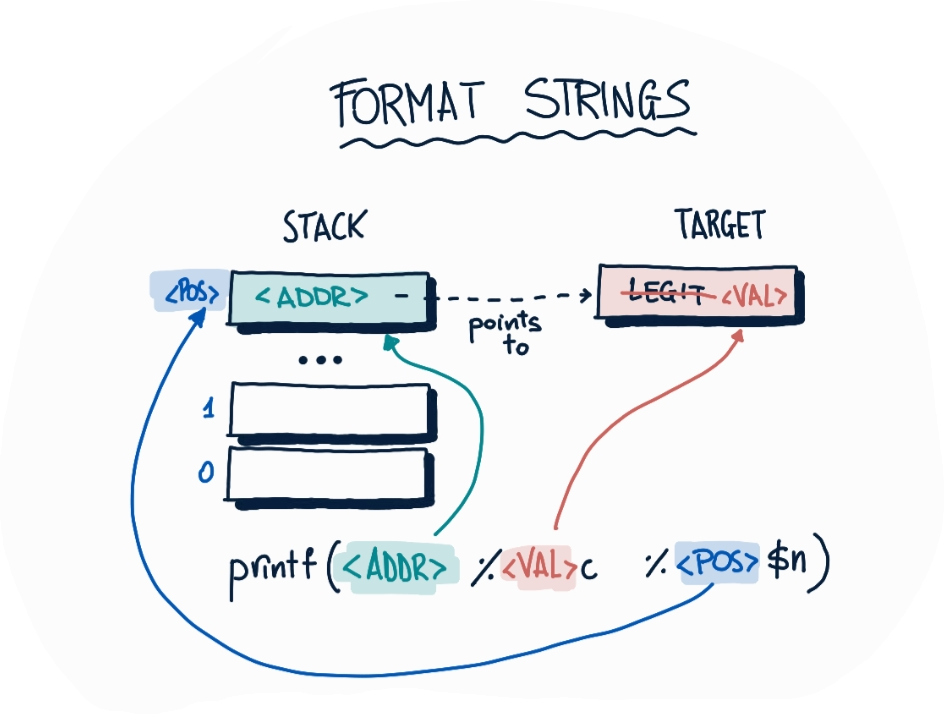 FORMAT STRINGS
STACK
TARGET
<POS>
<ADDR>
LEGIT <VAL>
points
to
...
1
0
printf(<ADDR> %<VAL>c %<POS>$n)